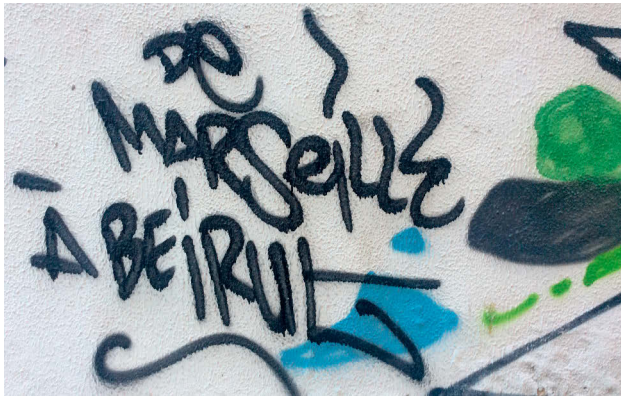 DE
MARSEILLE
À BEIRUT